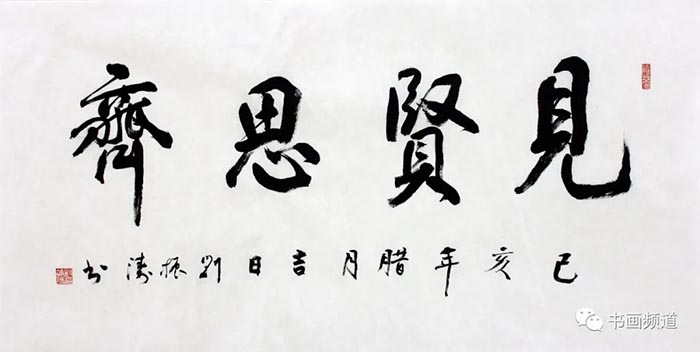 見賢思齊
己亥年腊月吉日刘振涛书
书画频道